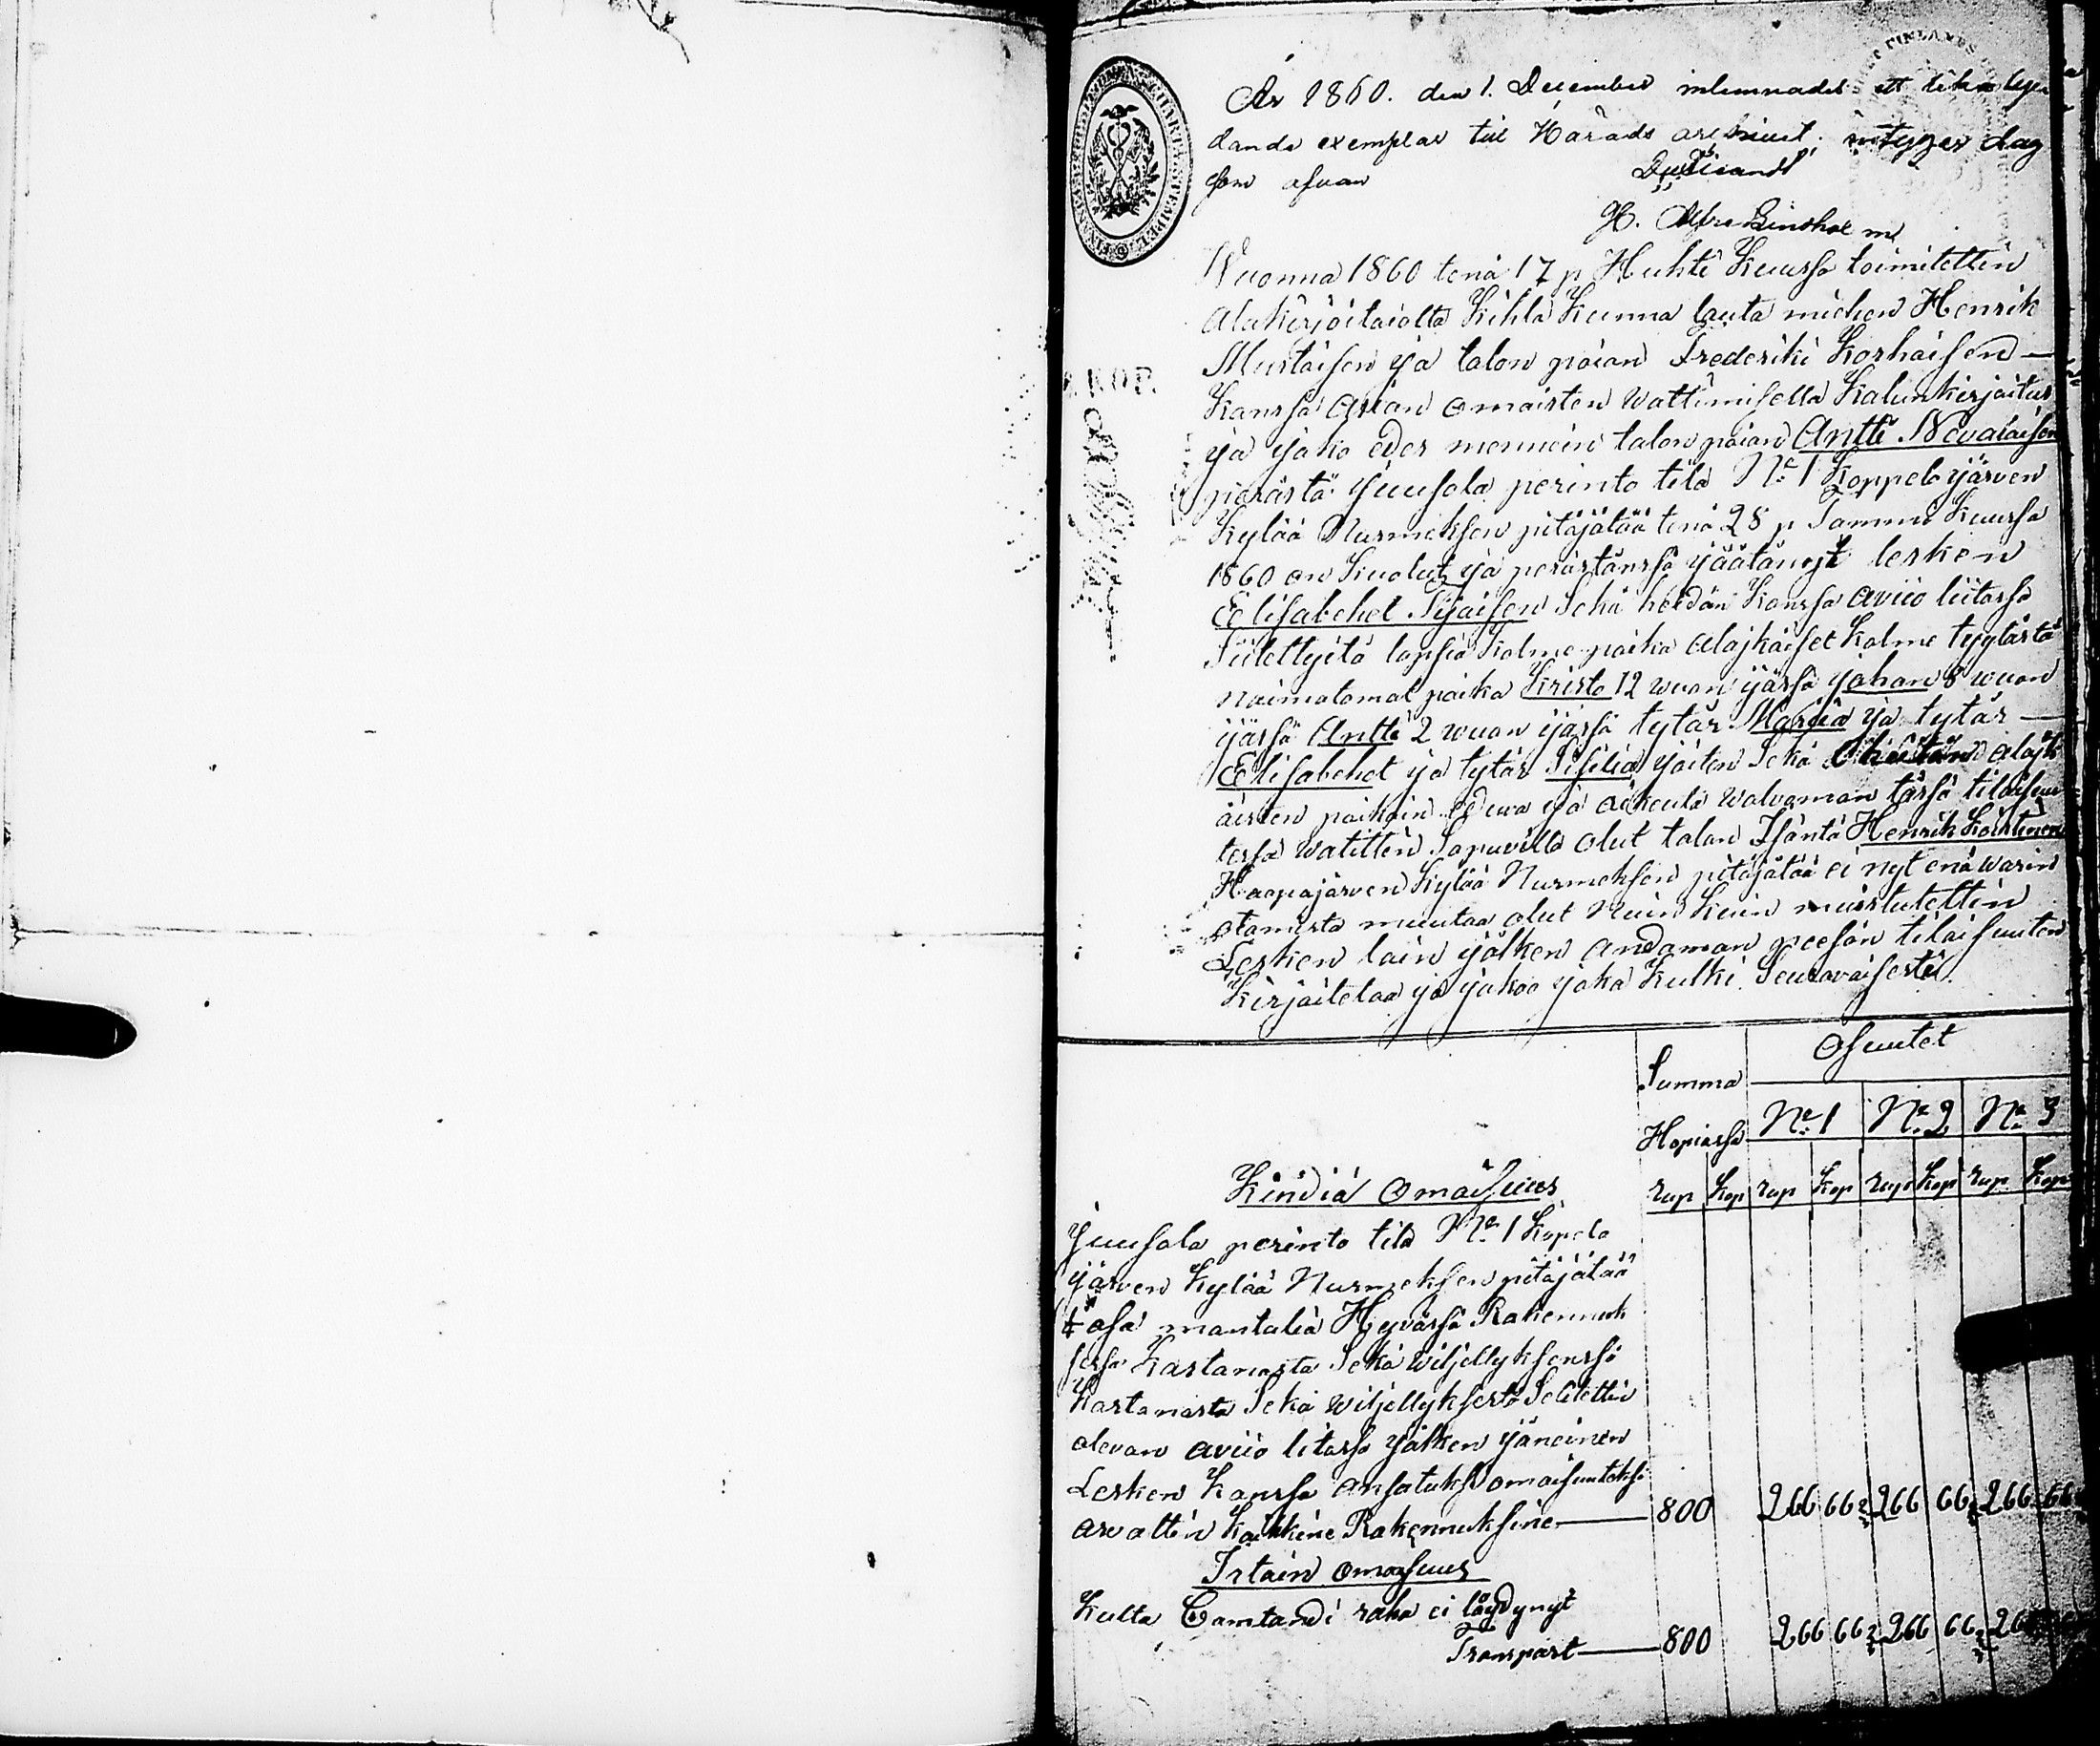 År 1860. den 1. December inlemnades ett lika lyd-
dande exemplar till Härads archivet; intygger dag
som ofvan
H. Alfr Lindholm
Wuonna 1860 tenä 17 p Huhti Kuussa toimitettin
Alakirjoitaiolta Kihla Kunna lauta miehen Henrik
Mustaisen ja talon poian Frederiki Korhaisen —
Kanssa asian omaisten Wattimisella Kalunkirjoitus
ja jako edes mennein talon poian Antti Nevalaisen
perästä Juusola perinto tila No 1 Koppelojärven
Kylää Nurmeksen pitäjätää tenä 28 p Tammi Kuussa
1860 on Kuolut ja perästänsä jäätänyt lesken
Eelisabehet Pijaisen Sekä heidän Kanssa aviio liitossa
Siitettyitä lapsia Kolme poika alajkäiset Kolme tyytärtä
Naimatomat poika Kristo 12 wuan ijässä Johan 8 wuan
ijässä Antti 2 wuan ijässä tytär Maria ja tytär —
Eelisabehet ja tytär Sisilia joiten Sekä alajk
äisten poikain eduva ja oikeuta Walvoman tässä tilaisuu
tessa Watittin Sapuvilla olut talon Isäntä Henrik Koistinen
Haapajärven Kylää Nurmeksen pitäjätää ei nyt enä warin
otamista muutaa olut Nuin Kuin muistutettin
Lesken lain jälken andaman peesän tilaisuuten
Kirjoitetaa ja jakoa joka Kulki Seuravaisesti.
Summa Osuutet
Hopiassa No 1 No 2 No 3
Kindiä Omaisuus rup Kop rup Kop rup Kop rup Kop
Juusola perinto tila No 1 Kopelo
järven Kylää Nurmeksen pitäjätää
osa mantalia Hyvässä Rakennuk
sessa Kastanasta Sekä Wiljellyksenssä
Kastanasta Sekä Wiljellyksestä Selitettin
olevan aviio litossa jälken jäneinen
Lesken Kanssa Ansatuksi omaisuuteksi
arvattin Kaikkine Rakennuksine — 800 266 66 2/3 266 66 2/3 266 66
Irtain omaisuus
Kulta Contandi raha ei löydynyt
Transport — 800 266 66 2/3 266 66 2/3